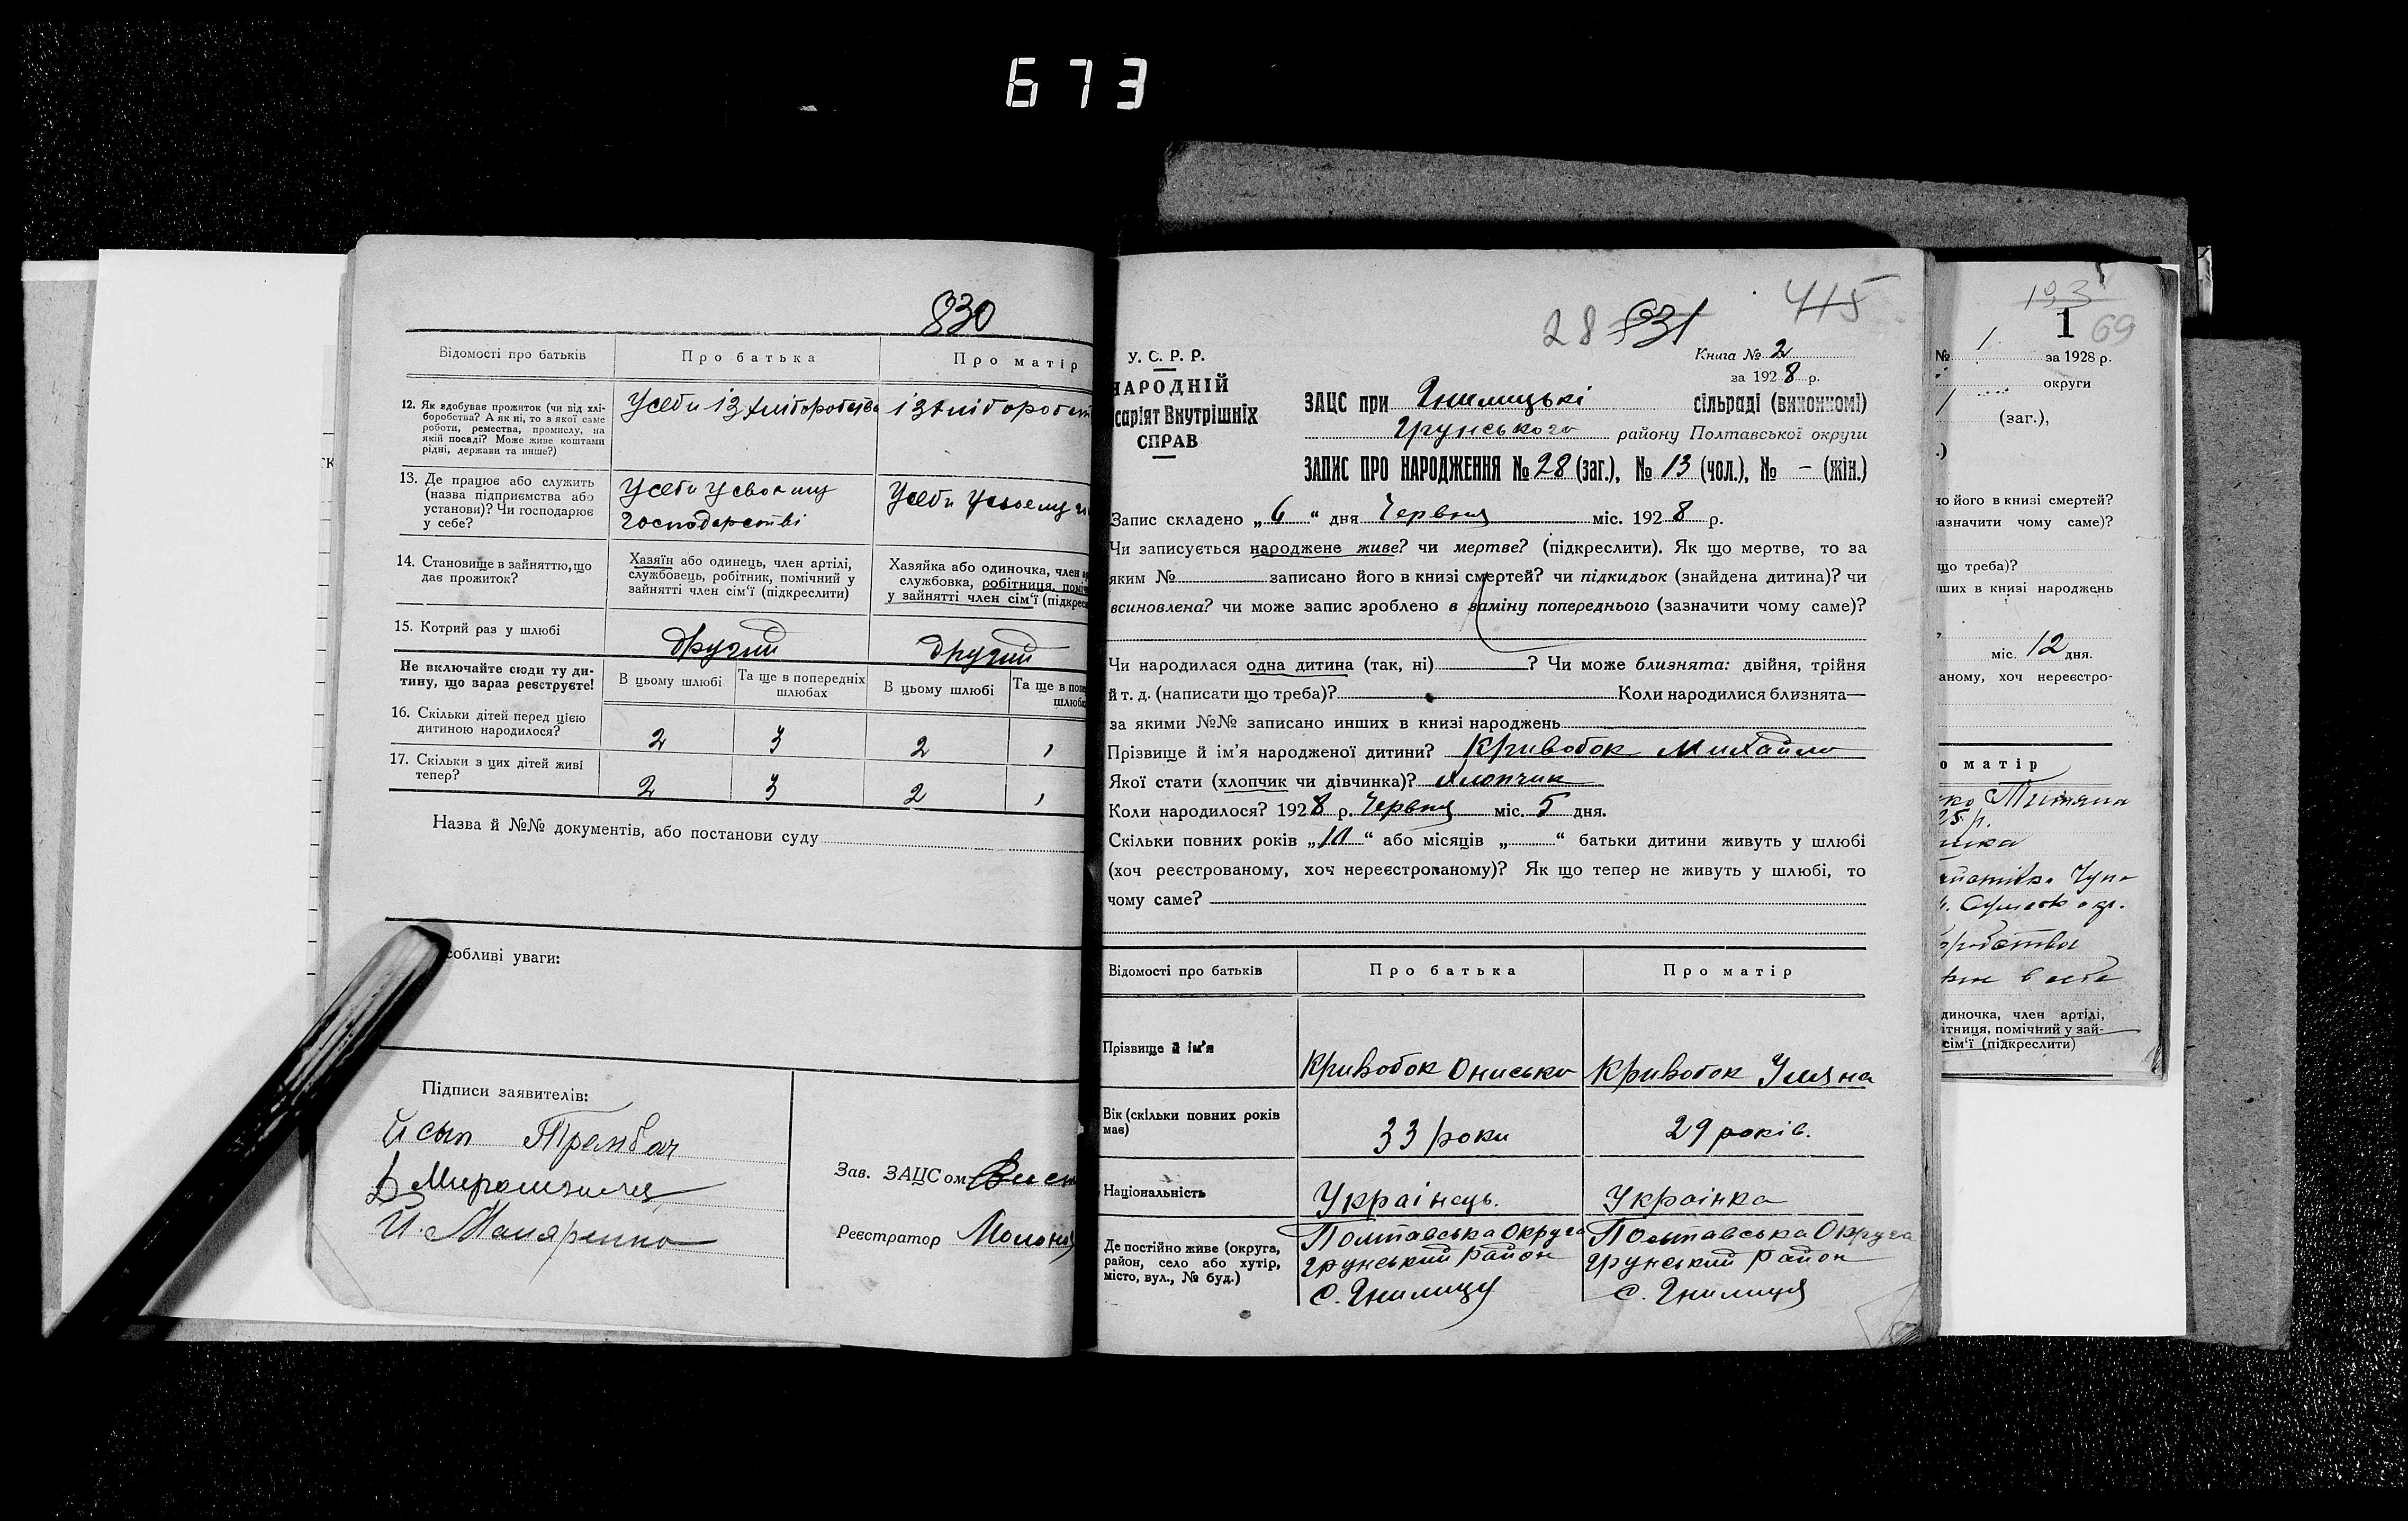 673
830
Відомості про батьків
Про батька
Про матір
12. Як здобуває прожиток (чи від хлі-
боробства? А як ні, то з якої саме
роботи, ремества, промислу, на
якій посаді? Може живе коштами
рідні, держави та инше?)
Усеби із хліборобства
із хліборобст
13. Де працює або служить
(назва підприємства або
установи)? Чи господарює
у себе?
Усеби у своему
господарстві
Усеби у своему
14. Становище в зайняттю, що
дає прожиток?
Хазяїн або одинець, член артілі,
службовець, робітник, помічний у
зайнятті член сім'ї (підкреслити)
Хазяйка або одиночка, член ар
службовка, робітниця, поміч
у зайнятті член сім'ї (підкрес
15. Котрий раз у шлюбі
другий
другий
Не включайте сюди ту ди-
тину, що зараз реєструєте!
В цьому шлюбі
Та ще в попередніх
шлюбах
В цьому шлюбі
Та ще в попе
шлюба
16. Скільки дітей перед цією
дитиною народилося?
2 3 2 ,
17. Скільки з цих дітей живі
тепер?
2 3 2 ,
Назва й №№ документів, або постанови суду
собливі уваги:
Підписи заявителів:
Йсып Трембач
Мирошничен
Й. Маляренко
Зав. ЗАЦСом
Реєстратор
28 831 415
У. С. Р. Р.
НАРОДНІЙ
саріят Внутрішніх
СПРАВ
Книга № 2
за 1928 р.
ЗАЦС при Гнилицькі сільраді (виконкомі)
Грунського району Полтавської округи
ЗАПИС ПРО НАРОДЖЕННЯ № 28 (заг.), № 13 (чол.), № – (жін.)
Запис складено „6“ дня Червня міс. 1928 р.
Чи записується народжене живе? чи мертве? (підкреслити). Як що мертве, то за
яким № записано його в книзі смертей? чи підкидьок (знайдена дитина)? чи
всиновлена? чи може запис зроблено в заміну попереднього (зазначити чому саме)?
Чи народилася одна дитина (так, ні) ? Чи може близнята: двійня, трійня
й т. д. (написати що треба)? Коли народилися близнята—
за якими №№ записано инших в книзі народжень
Прізвище й ім'я народженої дитини? Кривобок Михайло
Якої стати (хлопчик чи дівчинка)? Хлопчик
Коли народилося? 1928 р. Червня міс. 5 дня.
Скільки повних років „10“ або місяців „ “ батьки дитини живуть у шлюбі
(хоч реєстрованому, хоч нереєстрованому)? Як що тепер не живуть у шлюбі, то
чому саме?
Відомості про батьків
Про батька
Про матір
Прізвище й ім'я
Кривобок Онисько
Кривобок Уляна
Вік (скільки повних років
має)
33 роки
29 років.
Національність
Українець.
Українка
Де постійно живе (округа,
район, село або хутір,
місто, вул., № буд.)
Полтавська Округа
Грунський район
с. Гнилиця
Полтавська Округа
Грунський район
с. Гнилиця
193
1 69
№ 1 за 1928 р.
округи
1 (заг.),
.)
но його в книзі смертей?
зазначити чому саме)?
що треба)?
нших в книзі народжень
міс. 12 дня.
аному, хоч нереєстро-
о матір
25 р.
диночка, член артілі,
ітниця, помічний у зай-
сім'ї (підкреслити)